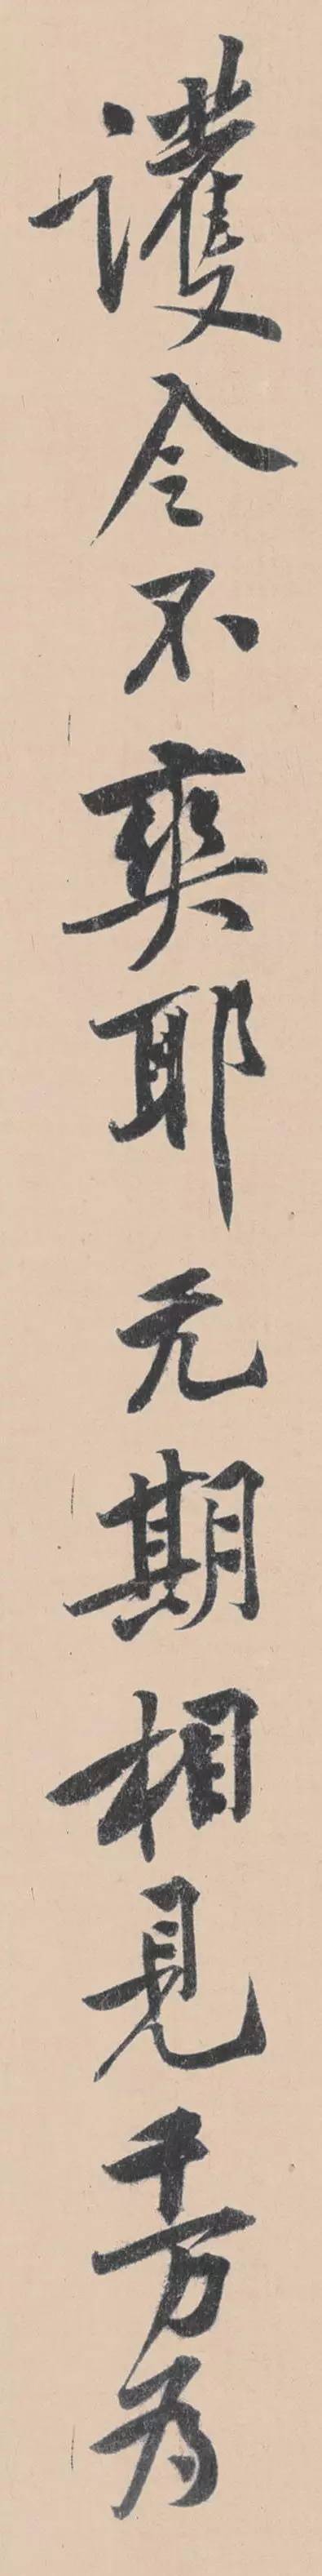 護令不爽耶无期相見千万為